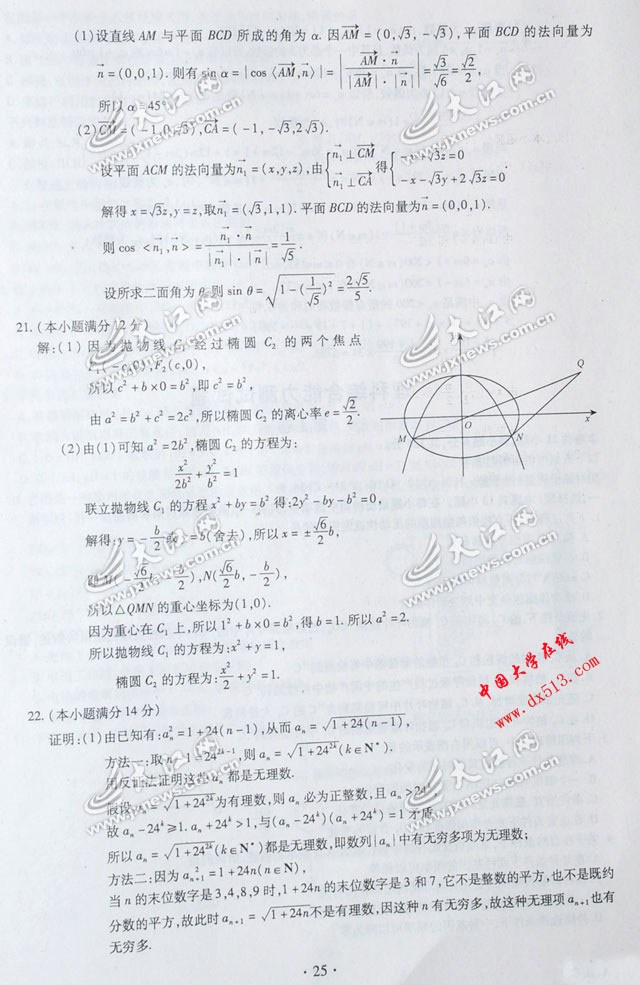 (1)设直线 AM 与平面 BCD 所成的角为 α. 因 \overrightarrow{AM} = (0,√3, -√3), 平面 BCD 的法向量为
\vec{n} = (0,0,1). 则有 sin α = |cos⟨\overrightarrow{AM},\vec{n}⟩| = |\frac{\overrightarrow{AM}·\vec{n}}{|\overrightarrow{AM}|·|\vec{n}|}| = \frac{√3}{√6} = \frac{√2}{2},
所以 α = 45°.
(2)\overrightarrow{CM} = (-1,0,√3),\overrightarrow{CA} = (-1, -√3,2√3).
设平面 ACM 的法向量为 \vec{n_1} = (x,y,z), 由 {\vec{n_1}⊥\overrightarrow{CM} \vec{n_1}⊥\overrightarrow{CA} 得 {-x+√3z=0 -x-√3y+2√3z=0
解得 x = √3z, y = z, 取 \vec{n_1} = (√3,1,1). 平面 BCD 的法向量为 \vec{n} = (0,0,1).
则 cos <\vec{n_1},\vec{n}> = \frac{\vec{n_1}·\vec{n}}{|\vec{n_1}|·|\vec{n}|} = \frac{1}{√5}.
设所求二面角为 θ,则 sin θ = \sqrt{1-(\frac{1}{√5})^2} = \frac{2√5}{5}.
21. (本小题满分12分)
解:(1) 因为抛物线 C_1 经过椭圆 C_2 的两个焦点
F_1(-c,0),F_2(c,0),
所以 c^2 + b×0 = b^2, 即 c^2 = b^2,
由 a^2 = b^2 + c^2 = 2c^2, 所以椭圆 C_2 的离心率 e = \frac{√2}{2}.
(2)由(1)可知 a^2 = 2b^2, 椭圆 C_2 的方程为:
\frac{x^2}{2b^2} + \frac{y^2}{b^2} = 1
联立抛物线 C_1 的方程 x^2 + by = b^2 得:2y^2 - by - b^2 = 0,
解得:y = -\frac{b}{2} 或 y = b(舍去), 所以 x = ±\frac{√6}{2}b,
即 M(-\frac{√6}{2}b, -\frac{b}{2}),N(\frac{√6}{2}b, -\frac{b}{2}),
所以△QMN 的重心坐标为(1,0).
因为重心在 C_1 上,所以 1^2 + b×0 = b^2, 得 b = 1. 所以 a^2 = 2.
所以抛物线 C_1 的方程为:x^2 + y = 1,
椭圆 C_2 的方程为:\frac{x^2}{2} + y^2 = 1.
y
Q
O
x
M
N
22. (本小题满分14分)
证明:(1)由已知有:a_n^2 = 1 + 24(n-1), 从而 a_n = \sqrt{1+24(n-1)},
方法一:取 n - 1 = 24^{2k-1}, 则 a_n = \sqrt{1+24^{2k}}(k∈N*).
用反证法证明这些 a_n 都是无理数.
假设 a_n = \sqrt{1+24^{2k}} 为有理数,则 a_n 必为正整数,且 a_n > 24^k,
故 a_n - 24^k ≥ 1. a_n + 24^k > 1, 与(a_n - 24^k)(a_n + 24^k) = 1 矛盾,
所以 a_n = \sqrt{1+24^{2k}}(k∈N*)都是无理数,即数列{a_n}中有无穷多项为无理数;
方法二:因为 a_{n+1}^2 = 1 + 24n(n∈N),
当 n 的末位数字是 3,4,8,9 时,1+24n 的末位数字是 3 和 7,它不是整数的平方,也不是既约
分数的平方,故此时 a_{n+1} = \sqrt{1+24n} 不是有理数,因这种 n 有无穷多,故这种无理项 a_{n+1} 也有
无穷多.
· 25 ·
大江网
www.jxnews.com.cn
大江网
www.jxnews.com.cn
大江网
www.jxnews.com.cn
大江网
www.jxnews.com.cn
大江网
www.jxnews.com.cn
大江网
www.jxnews.com.cn
大江网
www.jxnews.com.cn
大江网
www.jxnews.com.cn
中国大学在线
www.dx513.com